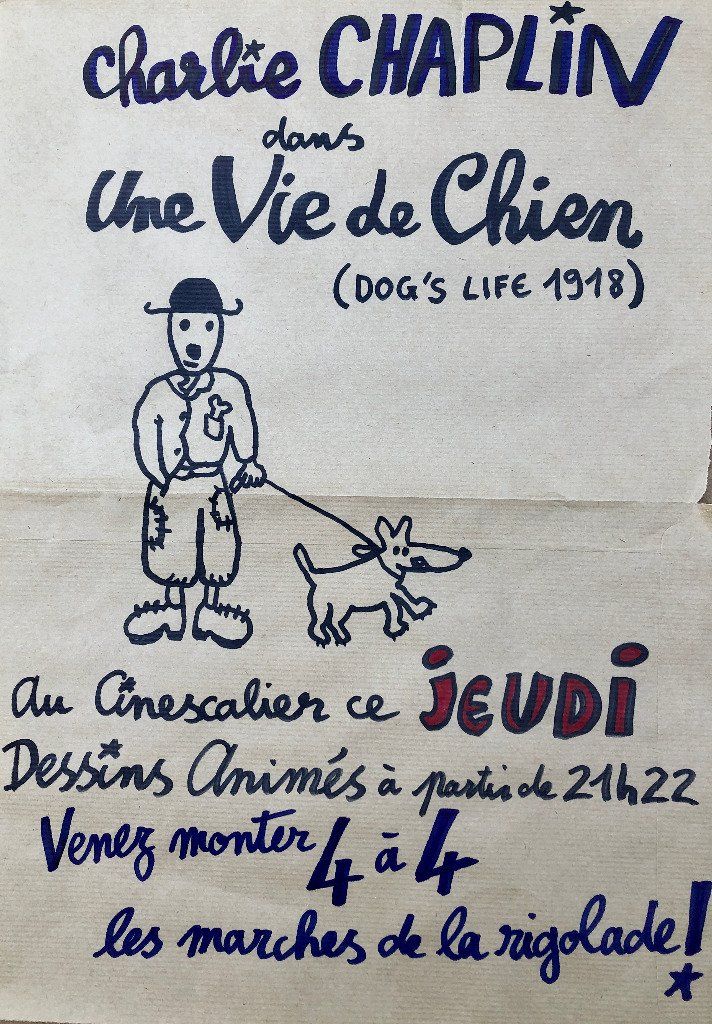 Charlie CHAPLIN
dans
Une Vie de Chien
(DOG'S LIFE 1918)
Au Cinescalier ce JEUDI
Dessins Animés à partir de 21h22
Venez monter 4 à 4
les marches de la rigolade!